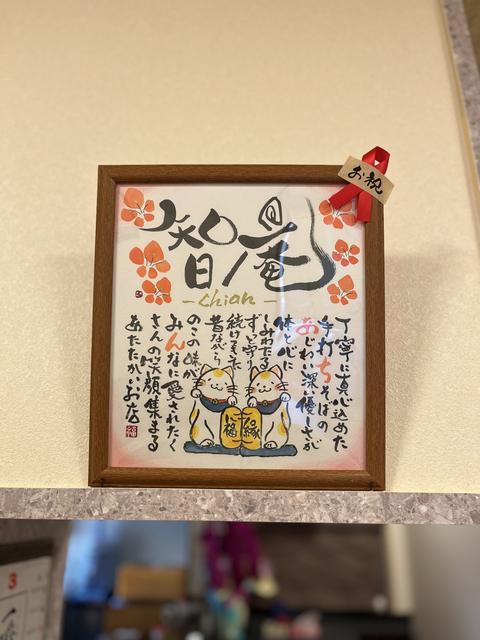 お祝
智庵
-chian-
丁寧に真心込めた
手打ちそばの
あじわい深い優しさが
体と心に
しみわたる
ずっと守り
続けてきた
昔ながら
のこの味が
みんなに愛されたく
さんの笑顔集まる
あたたかいお店
福
ご縁
に福
3